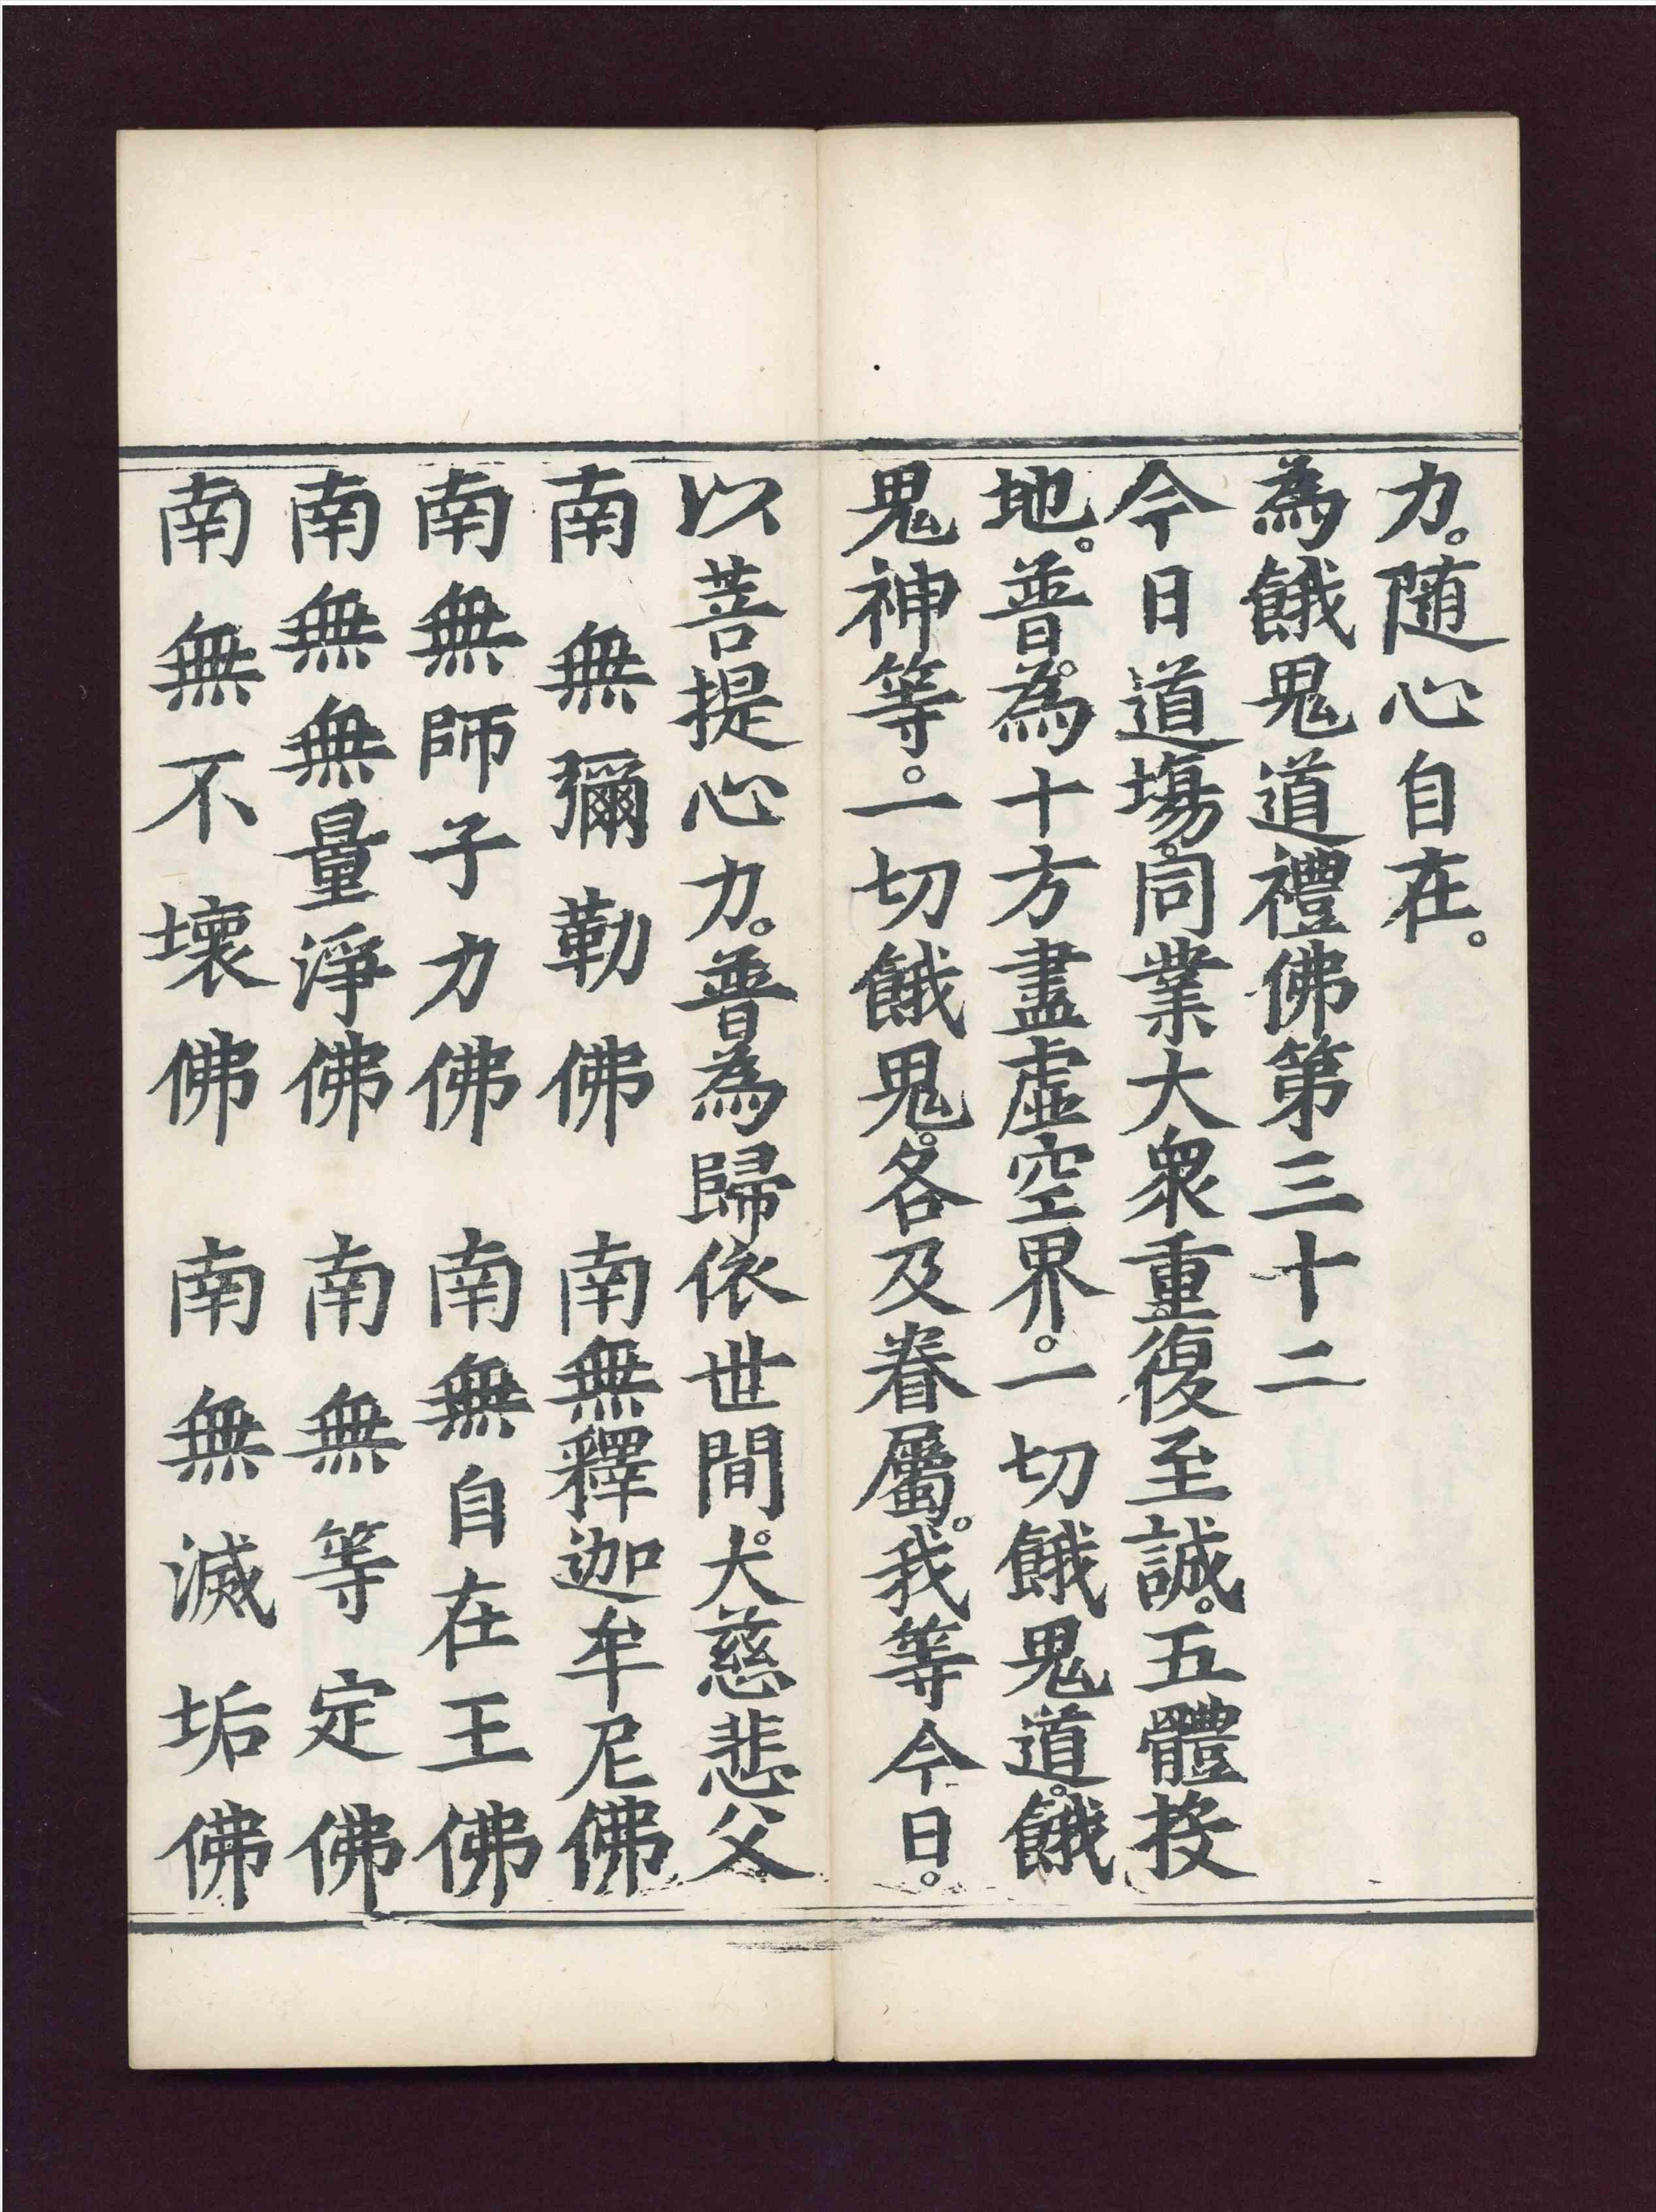 力。随心自在。
為餓鬼道禮佛第三十二
今日道場。同業大衆重。復至誠。五體投
地。普。為十方盡虛空界。一切餓鬼道。餓
鬼神等。一切餓鬼。各及眷屬。我等今日。
以菩提心力。普為歸依世間。大慈悲父
南無彌勒佛　南無釋迦牟尼佛
南無師子力佛　南無自在王佛
南無無量淨佛　南無等定佛
南無不壞佛　南無滅垢佛